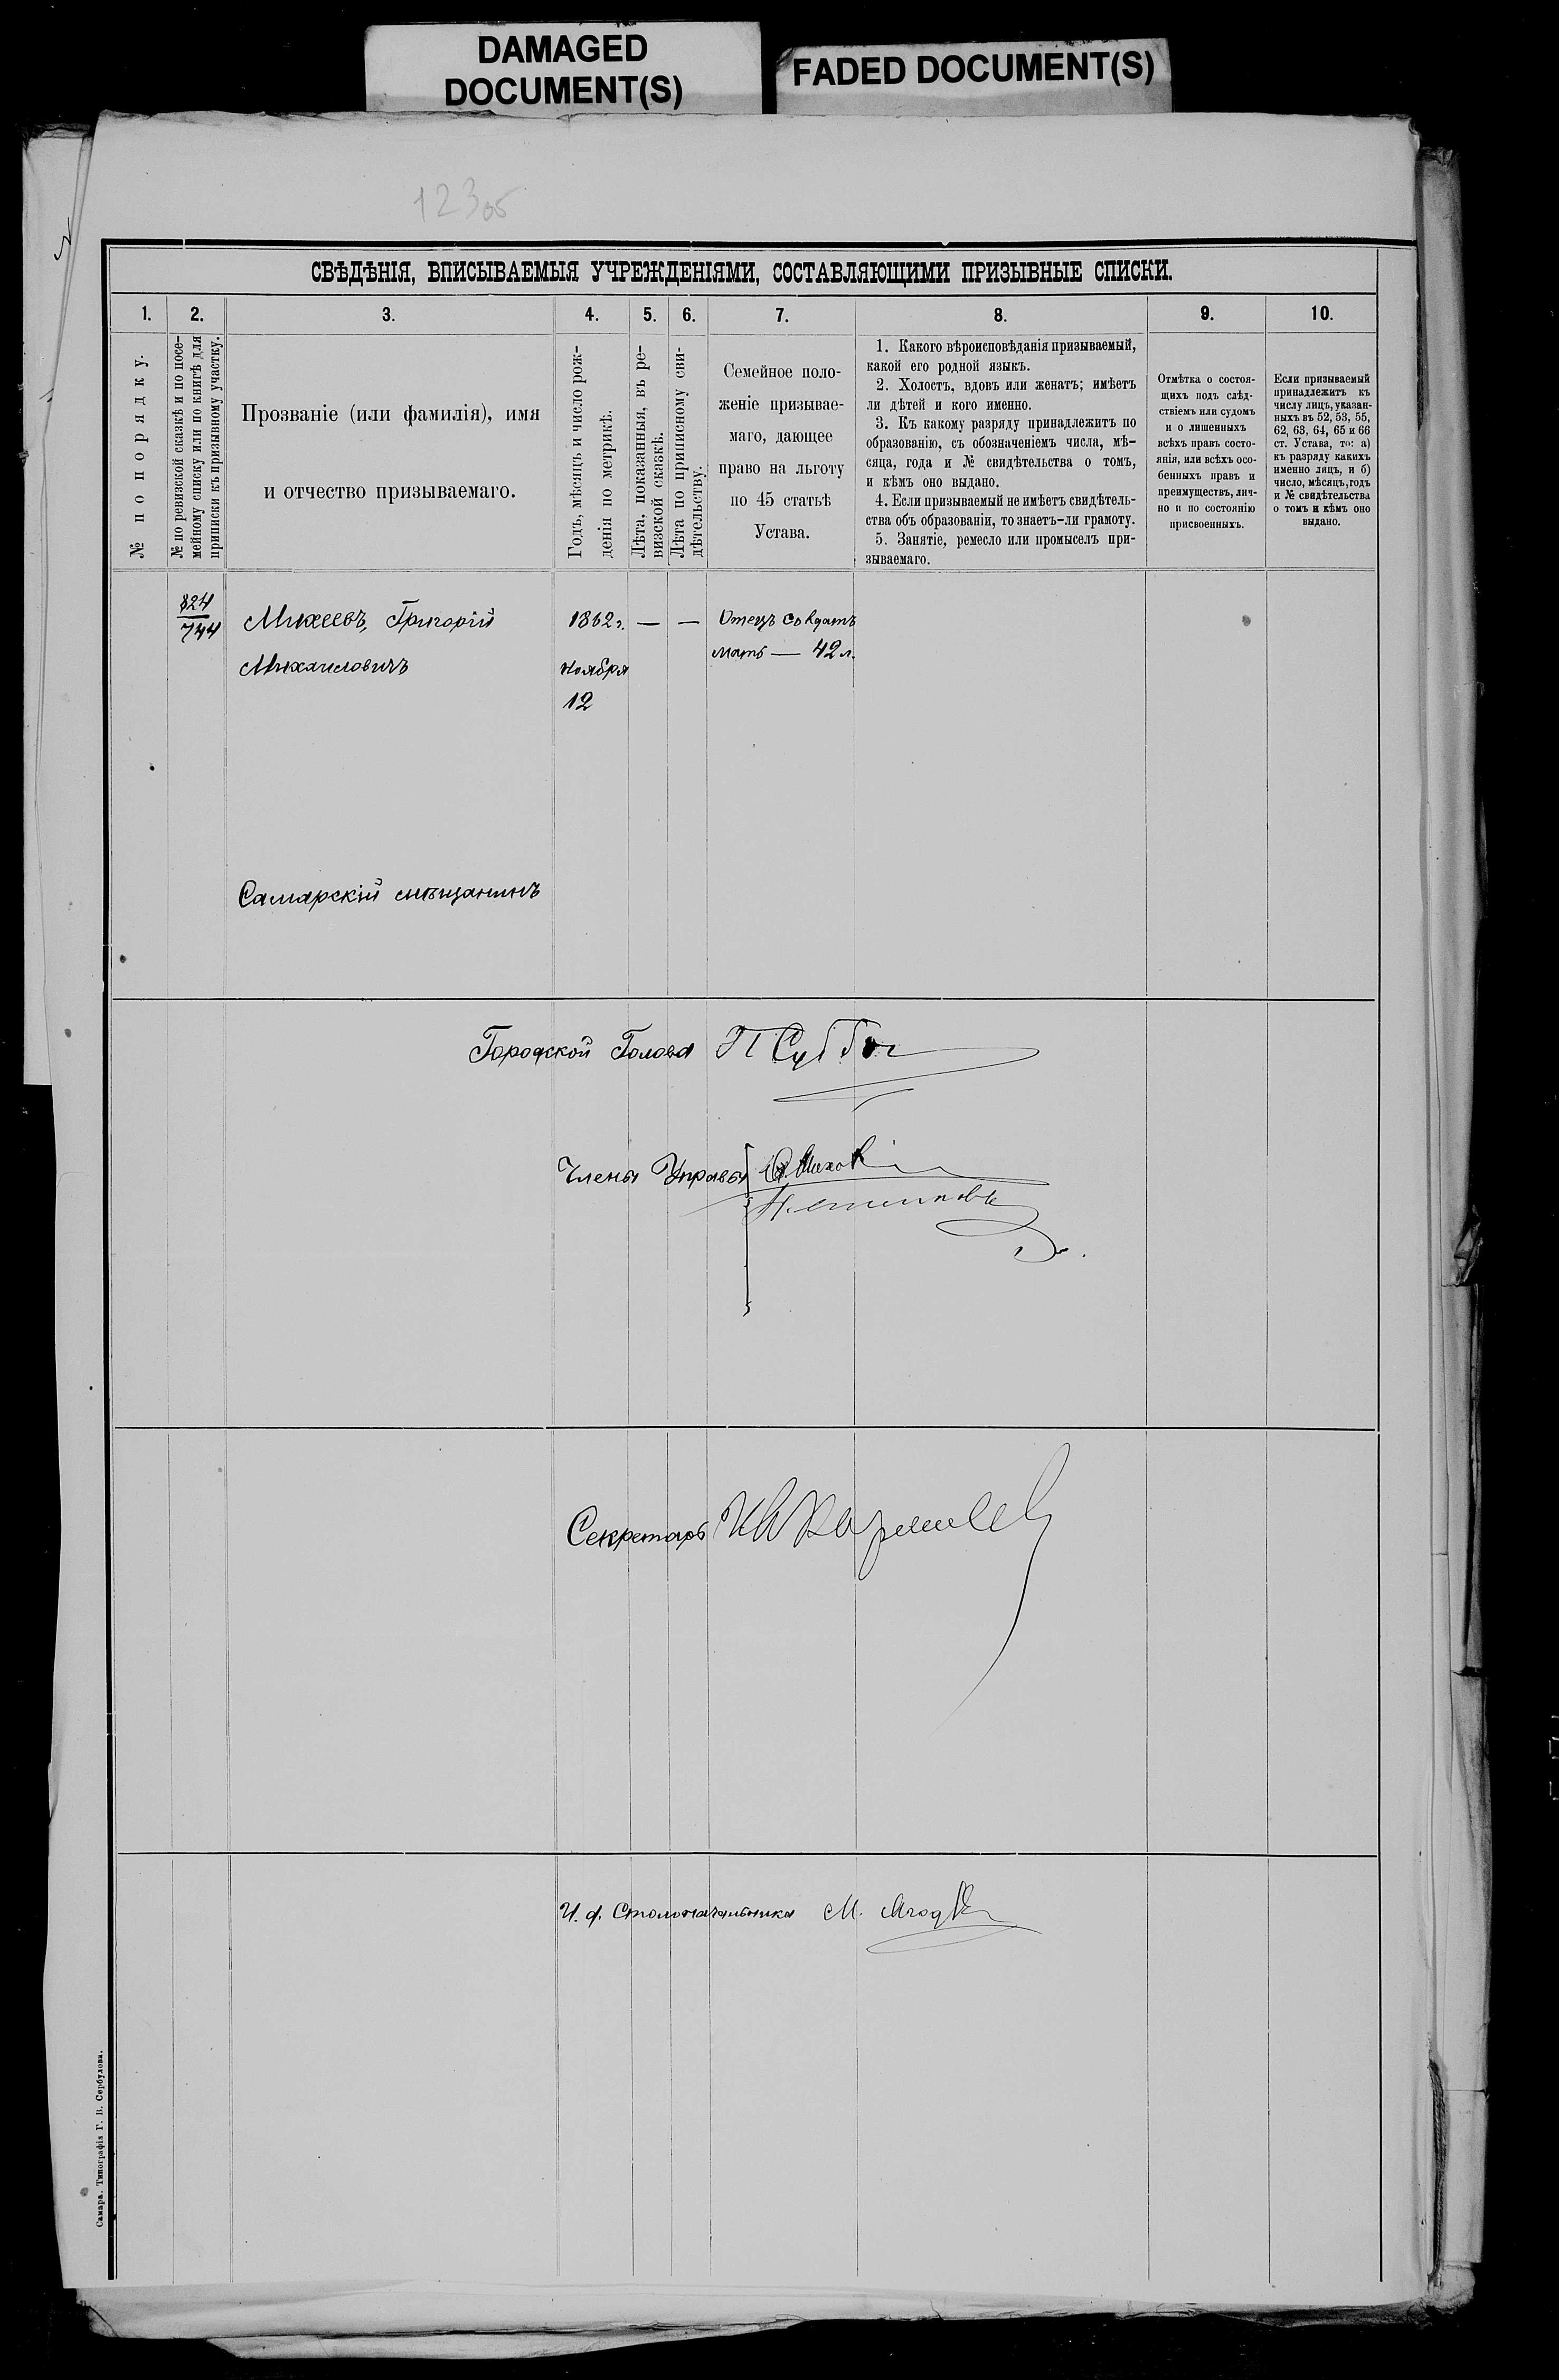 DAMAGED
DOCUMENT(S)
FADED DOCUMENT(S)
123об
СВѢДѢНІЯ, ВПИСЫВАЕМЫЯ УЧРЕЖДЕНІЯМИ, СОСТАВЛЯЮЩИМИ ПРИЗЫВНЫЕ СПИСКИ.
1. 2. 3. 4. 5. 6. 7. 8. 9. 10.
№ по порядку.
№ по ревизской сказкѣ и по посе-
мейному списку или по книгѣ для
приписки къ призывному участку.
Прозваніе (или фамилія), имя
и отчество призываемаго.
Годъ, мѣсяцъ и число рож-
денія по метрикѣ.
Лѣта, показанныя, въ ре-
визской сказкѣ.
Лѣта по приписному сви-
дѣтельству.
Семейное поло-
женіе призывае-
маго, дающее
право на льготу
по 45 статьѣ
Устава.
1. Какого вѣроисповѣданія призываемый,
какой его родной языкъ.
2. Холостъ, вдовъ или женатъ; имѣетъ
ли дѣтей и кого именно.
3. Къ какому разряду принадлежитъ по
образованію, съ обозначеніемъ числа, мѣ-
сяца, года и № свидѣтельства о томъ,
и кѣмъ оно выдано.
4. Если призываемый не имѣетъ свидѣтель-
ства объ образованіи, то знаетъ-ли грамоту.
5. Занятіе, ремесло или промыселъ при-
зываемаго.
Отмѣтка о состоя-
щихъ подъ слѣд-
ствіемъ или судомъ
и о лишенныхъ
всѣхъ правъ состо-
янія, или всѣхъ осо-
бенныхъ правъ и
преимуществъ, лич-
но и по состоянію
присвоенныхъ.
Если призываемый
принадлежитъ къ
числу лицъ, указан-
ныхъ въ 52, 53, 55,
62, 63, 64, 65 и 66
ст. Устава, то: а)
къ разряду какихъ
именно лицъ, и б)
число, мѣсяцъ, годъ
и № свидѣтельства
о томъ и кѣмъ оно
выдано.
824
744
Михеевъ, Григорій
Михаиловичъ
1862 г.
ноября
12
— —
Отецъ солдатъ
мать — 42 л.
Самарскій мѣщанинъ
Городской Голова П Суббо
Члены Управы
Секретарь
И. д. Столоначальника М.
Самара. Типографія Г. В. Сербулова.